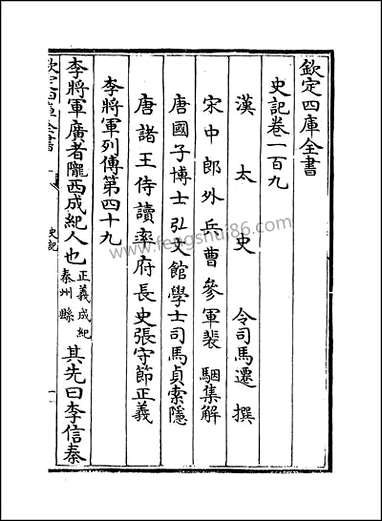 欽定四庫全書
史記卷一百九
漢太史令司馬遷撰
宋中郎外兵曹參軍裴駰集解
唐國子博士弘文館學士司馬貞索隱
唐諸王侍讀率府長史張守節正義
李將軍列傳第四十九
李將軍廣者隴西成紀人也正義成紀秦州縣其先曰李信秦
欽定四庫全書
史記
www.fengshui86.com